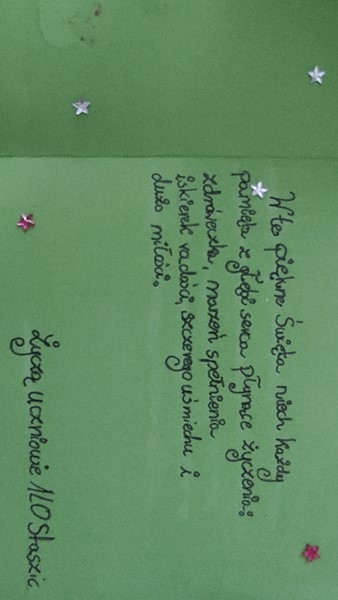 W te piękne Święta niech każdy
pamięta z głębi serca płynące życzenia:
zdróweczka, marzeń spełnienia
iskierek radości, szczerego uśmiechu i
dużo miłości.
Życzą uczniowie 1LO Staszic